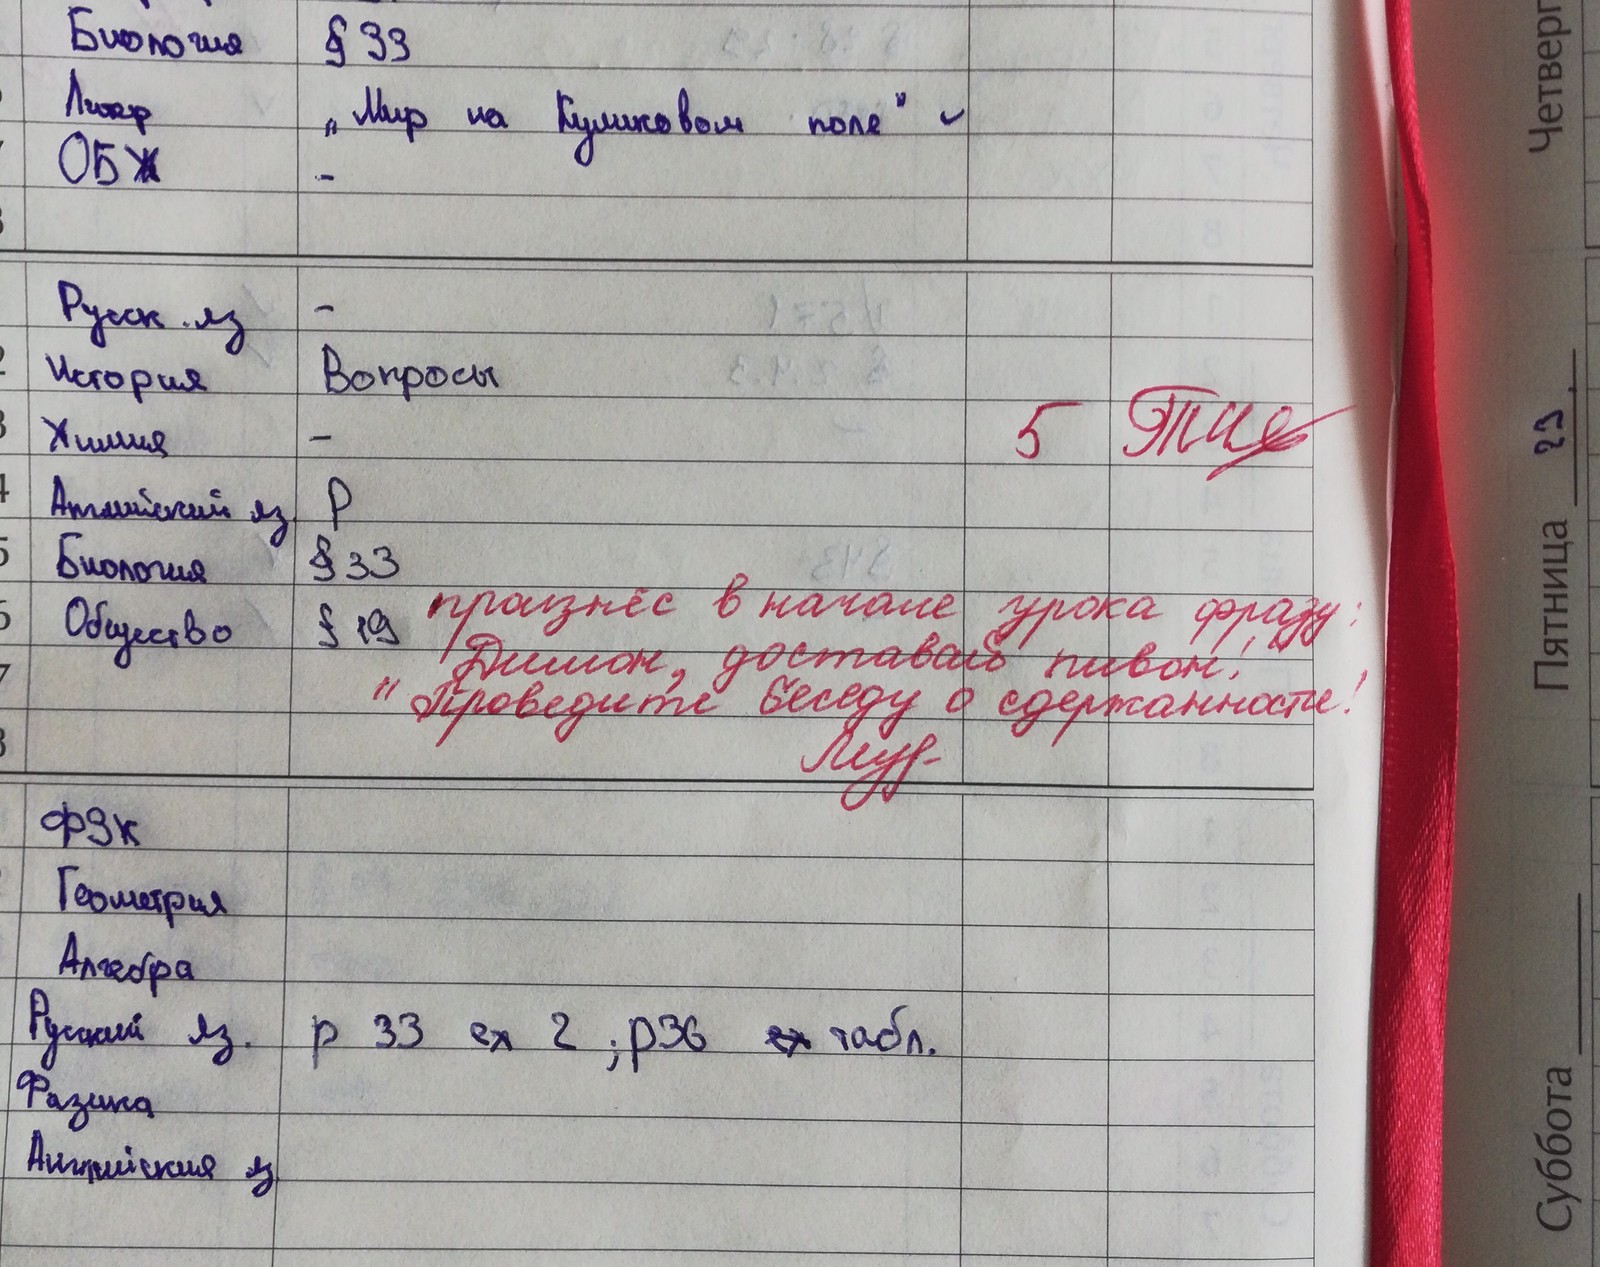 Биология § 33
Литер „Мир на Куликовом поле"
ОБЖ -
8
Русск. яз -
2 История Вопросы
3 Химия - 5
4 Английский яз P
5 Биология § 33
6 Общество § 19 произнёс в начале урока фразу:
7 "Димон, доставай пивон!"
Проведите беседу о сдержанности!
8
ФЗК
Геометрия
Алгебра
Русский яз. р 33 ex 2 ; р36 табл.
Физика
Английский яз
Четверг
Пятница 29
Суббота